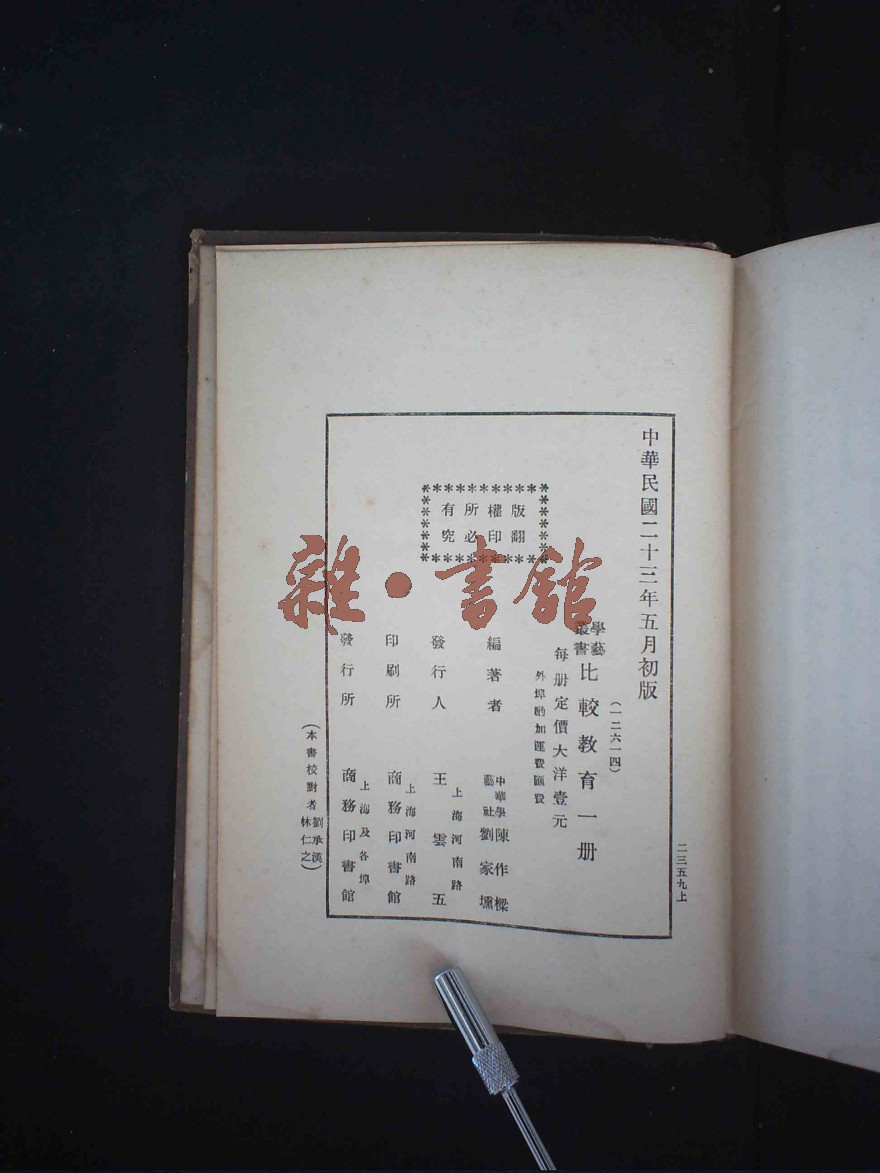 中華民國二十三年五月初版
(一二六一四)
學藝叢書 比較教育一册
每册定價大洋壹元
外埠酌加運費匯費
版權所有
翻印必究
編著者 中華學藝社 陳作樑 劉家壎
發行人 王雲五
上海河南路
印刷所 商務印書館
上海河南路
發行所 商務印書館
上海及各埠
(本書校對者劉承漢 林仁之)
二三五九上
雜·書館